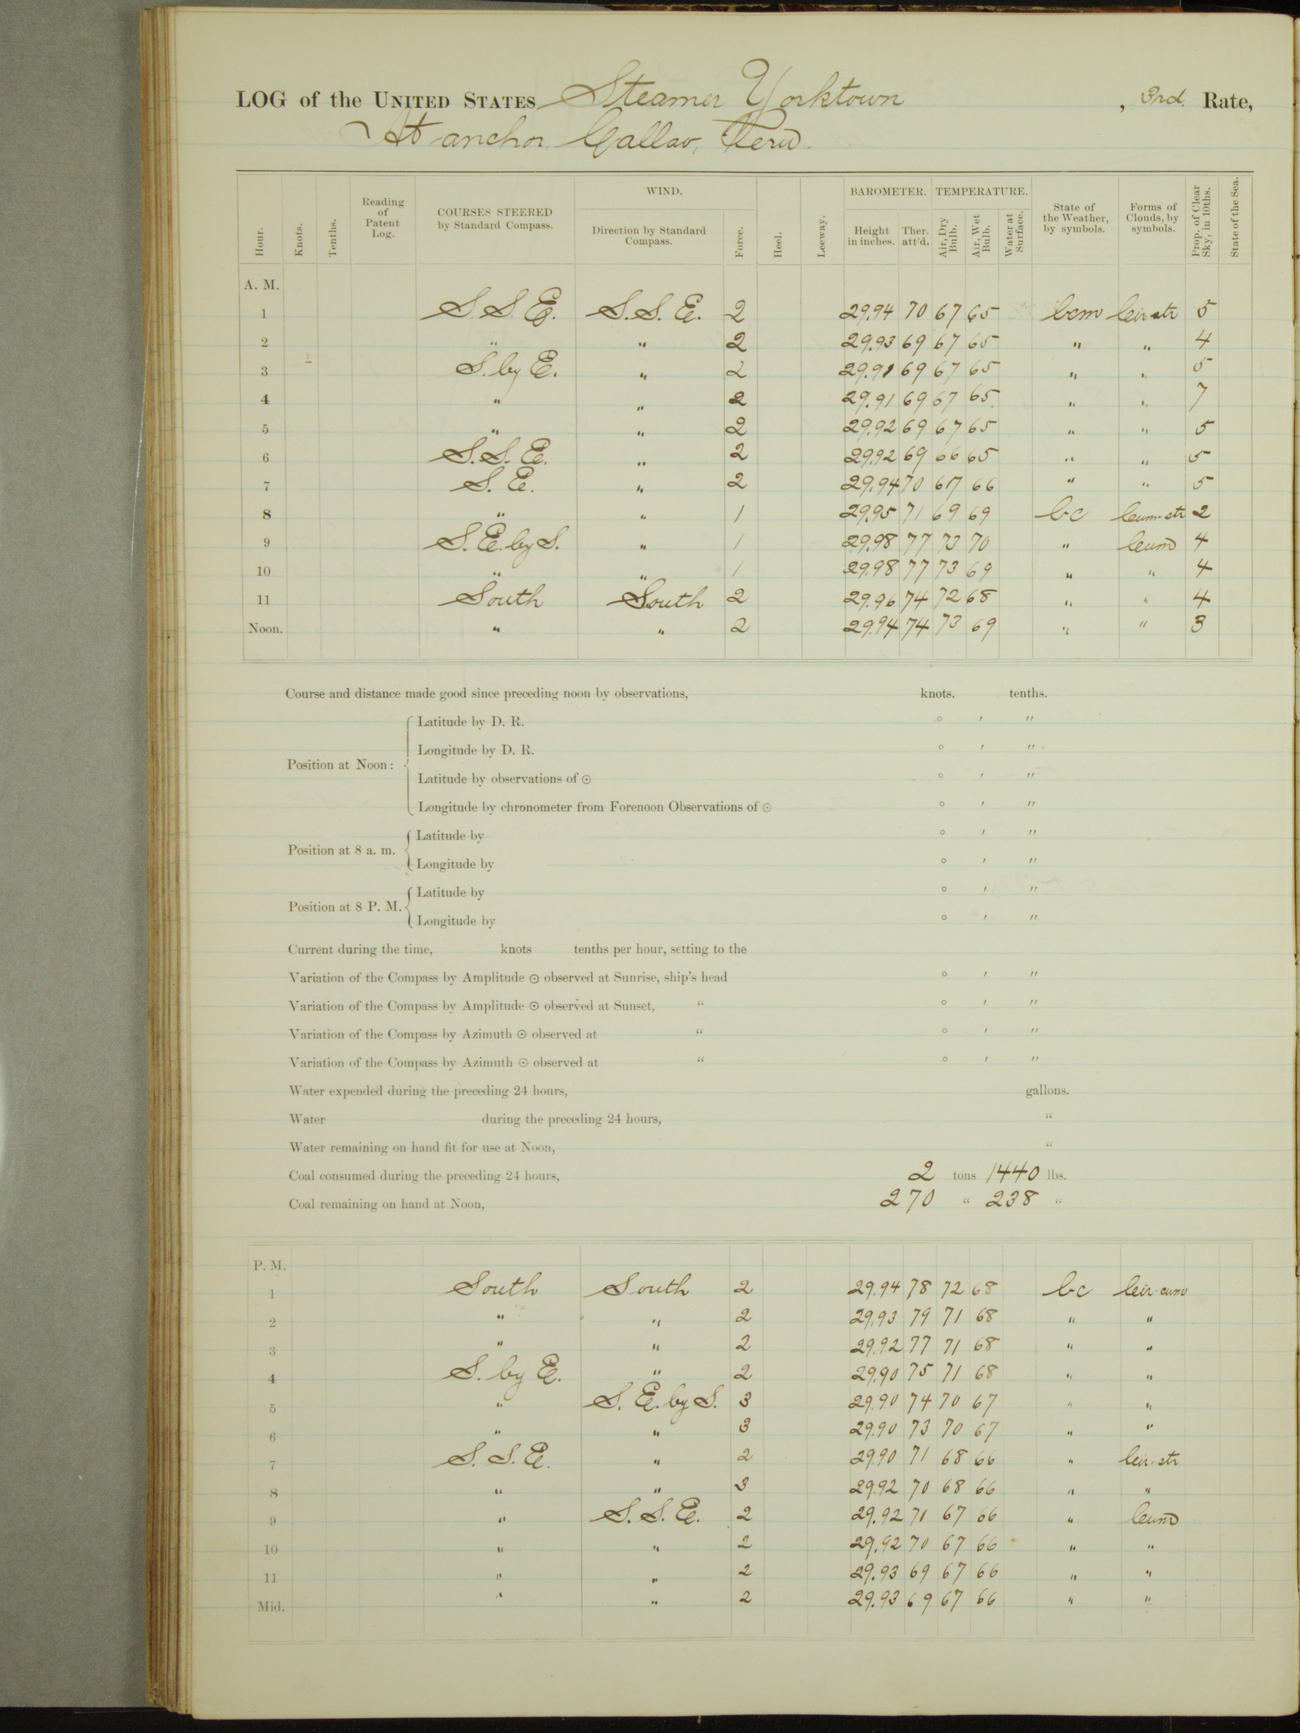 LOG of the UNITED STATES Steamer Yorktown, 3rd. Rate,
At anchor, Callao, Peru.
Hour. Knots. Tenths. Reading of Patent Log. COURSES STEERED by Standard Compass. WIND. Direction by Standard Compass. Force. Heel. Leeway. BAROMETER. Height in inches. Ther. att'd. TEMPERATURE. Air, Dry Bulb. Air, Wet Bulb. Water at Surface. State of the Weather, by symbols. Forms of Clouds, by symbols. Prop. of Clear Sky, in 10ths. State of the Sea.
A. M.
1 S S E. S. S. E. 2 29.94 70 67 65 bcm cir-str 5
2 " " 2 29.93 69 67 65 " " 4
3 S. by E. " 2 29.91 69 67 65 " " 5
4 " " 2 29.91 69 67 65 " " 7
5 " " 2 29.92 69 67 65 " " 5
6 S. S. E. " 2 29.92 69 66 65 " " 5
7 S. E. " 2 29.94 70 67 66 " " 5
8 " " 1 29.95 71 69 69 bc cum-str 2
9 S. E. by S. " 1 29.98 77 73 70 " cum 4
10 " " 1 29.98 77 73 69 " " 4
11 South South 2 29.96 74 72 68 " " 4
Noon. " " 2 29.94 74 73 69 " " 3
Course and distance made good since preceding noon by observations, knots. tenths.
Position at Noon: Latitude by D. R. ° ′ ″
Longitude by D. R. ° ′ ″
Latitude by observations of ☉ ° ′ ″
Longitude by chronometer from Forenoon Observations of ☉ ° ′ ″
Position at 8 a. m. Latitude by ° ′ ″
Longitude by ° ′ ″
Position at 8 P. M. Latitude by ° ′ ″
Longitude by ° ′ ″
Current during the time, knots tenths per hour, setting to the
Variation of the Compass by Amplitude ☉ observed at Sunrise, ship's head ° ′ ″
Variation of the Compass by Amplitude ☉ observed at Sunset, " ° ′ ″
Variation of the Compass by Azimuth ☉ observed at " ° ′ ″
Variation of the Compass by Azimuth ☉ observed at " ° ′ ″
Water expended during the preceding 24 hours, gallons.
Water during the preceding 24 hours, "
Water remaining on hand fit for use at Noon, "
Coal consumed during the preceding 24 hours, 2 tons 1440 lbs.
Coal remaining on hand at Noon, 270 " 238 "
P. M.
1 South South 2 29.94 78 72 68 bc cir-cum
2 " " 2 29.93 79 71 68 " "
3 " " 2 29.92 77 71 68 " "
4 S. by E. " 2 29.90 75 71 68 " "
5 " S. E. by S. 3 29.90 74 70 67 " "
6 " " 3 29.90 73 70 67 " "
7 S. S. E. " 2 29.90 71 68 66 " cir-str
8 " " 3 29.92 70 68 66 " "
9 " S. S. E. 2 29.92 71 67 66 " cum
10 " " 2 29.92 70 67 66 " "
11 " " 2 29.93 69 67 66 " "
Mid. " " 2 29.93 69 67 66 " "